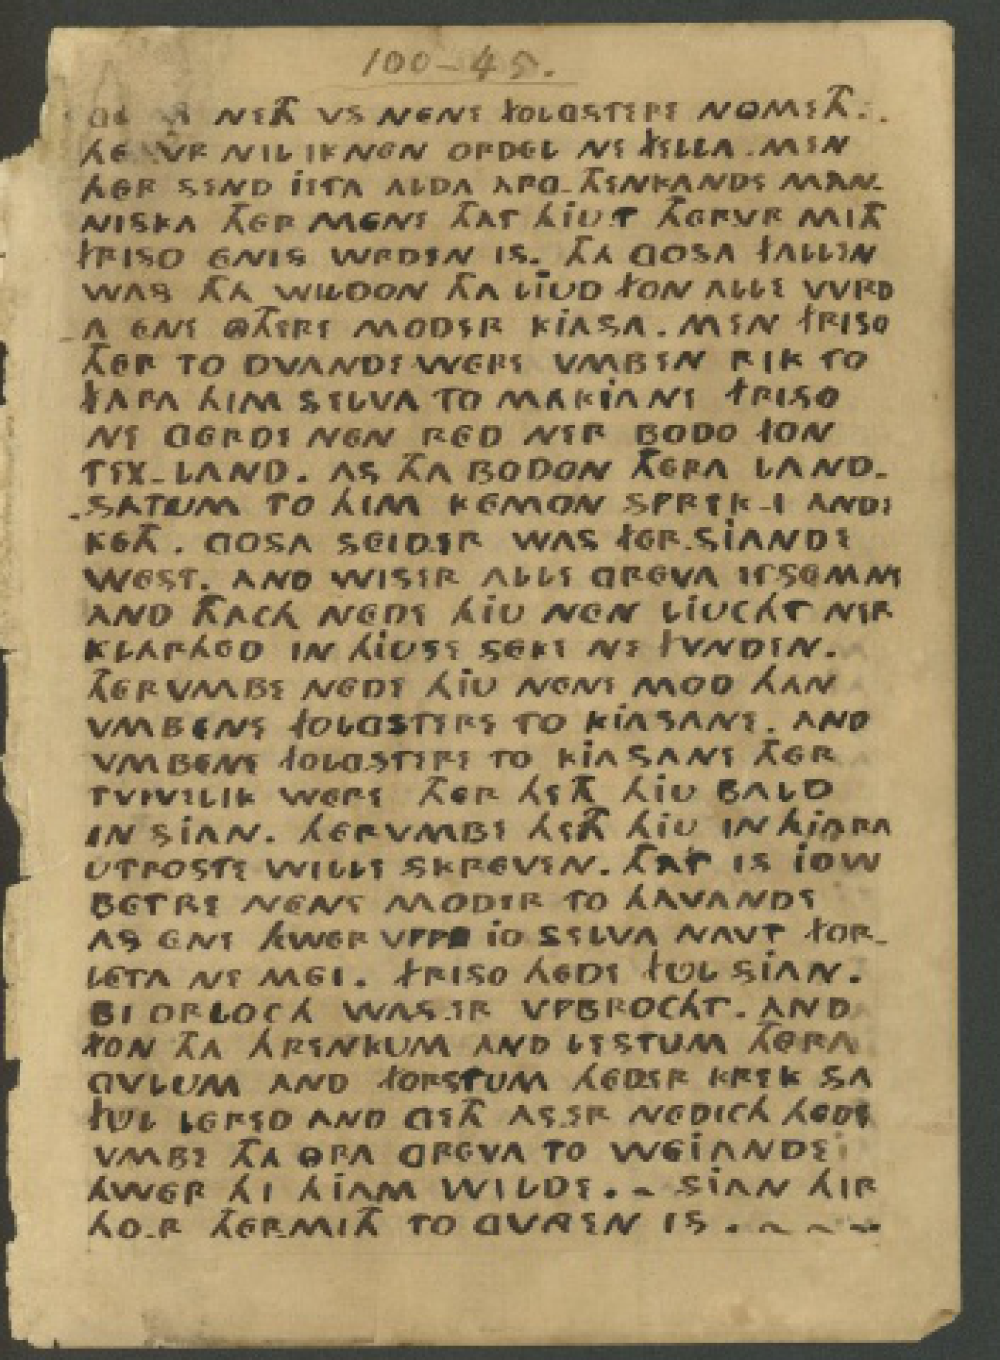 NETH VS NENE FOLGSTERE NOMETH.
VR NIL IK NEN ORDEL NE FELLA. MEN
HER SEND JETA ALDA ARG_THENKANDE MAN_
NISKA THER MENE THAT HJU.T THERVR MITH
FRISO ENIS WRDEN IS. THA GOSA FALLEN
WAS THA WILDON THA LJUD FON ALLE VVRD
_A ENE OTHERE MODER KJASA. MEN FRISO
THER TO DVANDE WERE VMBEN RIK TO
FARA HIM SELVA TO MAKJANE FRISO
NE GERDE NEN RED NER BODO FON
TEX_LAND. AS THA BODON THERA LAND_
SATUM TO HIM KEMON SPREK_I ANDE
KETH. GOSA SEIDER WAS FER.SJANDE
WEST. AND WISER ALLE GREVA ETSEMNE
AND THACH NEDE HJU NEN LJUCHT NER
KLARHED IN HJUSE SEKE NE FVNDEN.
THERVMBE NEDE HJU NENE MOD HAN
VMBENE FOLGSTERE TO KJASANE. AND
VMBENE FOLGSTERE TO KJASANE THER
TVIVELIK WERE THER HETH HJU BALD
IN SJAN. HERVMBE HETH HJU IN HJARA
UTROSTE WILLE SKREVEN. THAT IS JOW
BETRE NENE MODER TO HAVANDE
AS ENE HWER VPPA JO SELVA NAVT FOR_
LETA NE MEI. FRISO HEDE FUL SJAN.
BI ORLOCH WAS.ER VPBROCHT. AND
FON THA HRENKUM AND LESTUM THERA
GVLUM AND FORSTUM HEDER KREK SA
FUL LERED AND GETH AS.ER NEDICH HEDE
VMBE THA ORA GREVA TO WEJANDE
HWER HI HJAM WILDE. _ SJAN HIR
HO.R THERMITH TO GVNGEN IS.